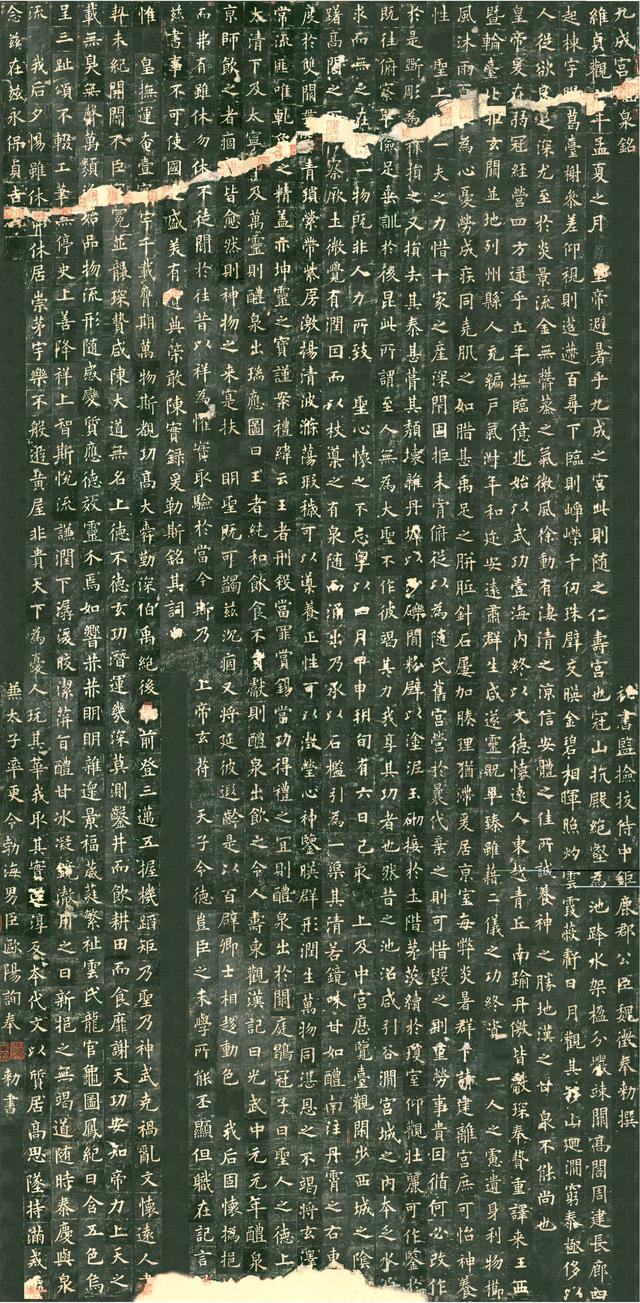 九成宮泉銘　秘書監檢校侍中鉅鹿郡公臣魏徵奉勑撰
維貞觀年孟夏之月　皇帝避暑乎九成之宮此則隨之仁壽宮也冠山抗殿絕壑為池跨水架楹分巖竦闕高閣周建長廊四
起棟宇葛臺榭參差仰視則迢遰百尋下臨則崢嶸千仞珠璧交暎金碧相暉照灼雲霞蔽虧日月觀其移山迴澗窮泰極侈以
人從欲良足深尤至於炎景流金無鬱蒸之氣微風徐動有淒清之涼信安體之佳所誠養神之勝地漢之甘泉不能尚也
皇帝爰在弱冠經營四方逮乎立年撫臨億兆始以武功壹海內終以文德懷遠人東越青丘南踰丹儌皆獻琛奉贄重譯來王西
暨輪臺北拒玄闕並地列州縣人充編戶氣淑年和迩安遠肅群生咸遂靈貺畢臻雖藉二儀之功終資　一人之慮遺身利物櫛
風沐雨為心憂勞成疾同堯肌之如腊甚禹足之胼胝針石屢加腠理猶滯爰居京室每弊炎暑群下請建離宮庶可怡神養
性　聖上一夫之力惜十家之產深閉固拒未肯俯從以為隨氏舊宮營於曩代棄之則可惜毀之則重勞事貴因循何必改作
於是斲彫為樸損之又損去其泰甚葺其頹壞雜丹墀以沙礫間粉壁以塗泥玉砌接於土階茅茨續於瓊室仰觀壯麗可作鑒於
既往俯察卑儉足垂訓於後昆此所謂至人無為大聖不作彼竭其力我享其功者也然昔之池沼咸引谷澗宮城之內本乏水源
求而無之在一物既非人力所致　聖心懷之不忘粵以四月甲申朔旬有六日己亥　上及中宮歷覽臺觀閑步西城之陰
躇高閣之察厥土微覺有潤因而以杖導之有泉隨而涌出乃承以石檻引為一渠其清若鏡味甘如醴南注丹霄之右東
度於雙闕青瑣縈帶紫房激揚清波滌蕩瑕穢可以導養正性可以澂瑩心神鑒暎群形潤生萬物同湛恩之不竭將玄澤
常流匪唯乾之精蓋亦坤靈之寶謹案禮緯云王者刑殺當罪賞錫當功得禮之宜則醴泉出於闕庭鶡冠子曰聖人之德上
太清下及太寧及萬靈則醴泉出瑞應圖曰王者純和飲食不貢獻則醴泉出飲之令人壽東觀漢記曰光武中元元年醴泉
京師飲之者痼皆愈然則神物之來寔扶　明聖既可蠲茲沉痼又將延彼遐齡是以百辟卿士相趨動色　我后固懷撝挹
而弗有雖休勿休不徒聞於往昔以祥為懼實取驗於當今斯乃　上帝玄符　天子令德豈臣之末學所能丕顯但職在記言
茲書事不可使國盛美有遺典策敢陳實錄爰勒斯銘其詞
惟　皇撫運奄壹宇千載膺期萬物斯覩功高大舜勤深伯禹絕後前登三邁五握機蹈矩乃聖乃神武克禍亂文懷遠人
契未紀開闢不臣冠冕並襲琛贄咸陳大道無名上德不德玄功潛運幾深莫測鑿井而飲耕田而食靡謝天功安知帝力上天之
載無臭無聲萬類資始品物流形隨感變質應德效靈介焉如響赫赫明明雜遝景福葳蕤繁祉雲氏龍官龜圖鳳紀日含五色烏
呈三趾頌不輟工筆無停史上善降祥上智斯悅流謙潤下潺湲皎潔蓱旨醴甘冰凝鏡澈用之日新挹之無竭道隨時泰慶與泉
流　我后夕惕雖休弗休居崇茅宇樂不般遊黃屋非貴天下為憂人玩其華我取其實還淳反本代文以質居高思墜持滿戒
念茲在茲永保貞吉　兼太子率更令勃海男臣歐陽詢奉勑書